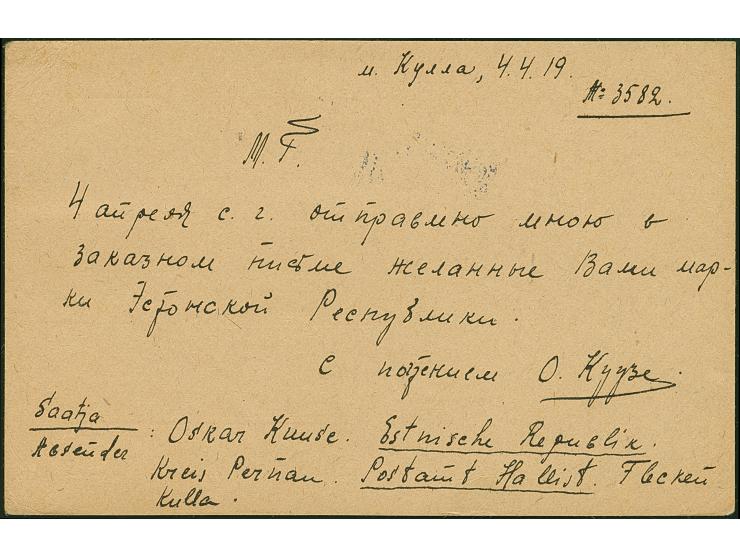 м. Кулла, 4.4.19.
№ 3582.
М. Г.
4 апреля с. г. отправлено мною в
заказном письме желанные Вами мар-
ки Эстонской Республики.
С почтением О. Куузе.
Saatja
Absender : Oskar Kuuse. Estnische Republik.
Kreis Pernau. Postamt Hallist. Flecken
Kulla.